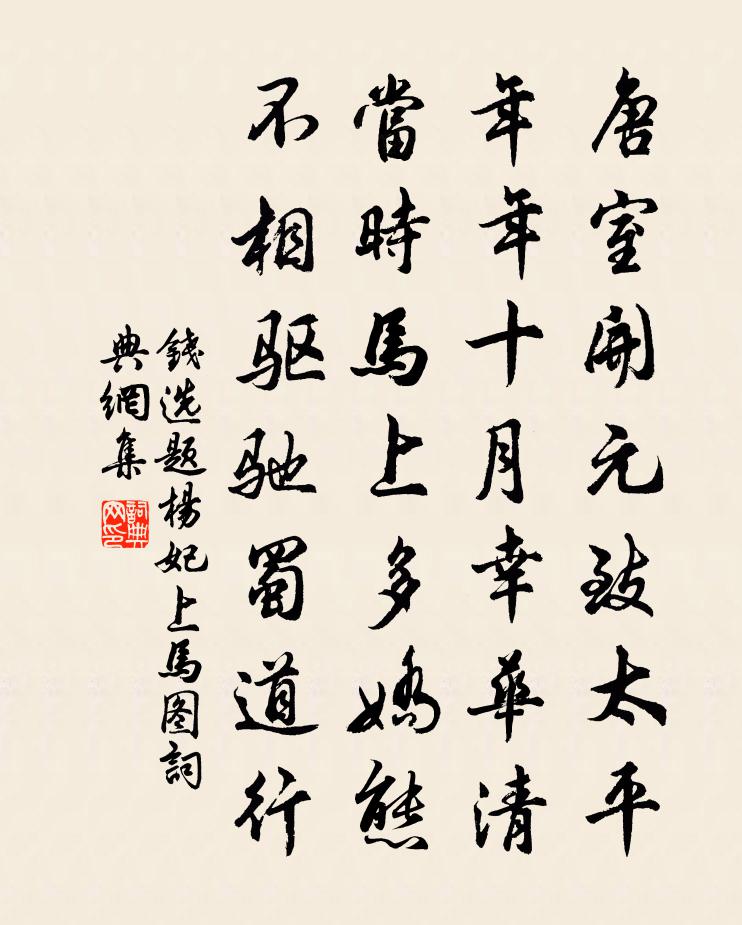 唐室開元致太平
年年十月幸華清
當時馬上多嬌態
不相驱驰蜀道行
錢选题楊妃上馬图詞
典網集
詞典
网印